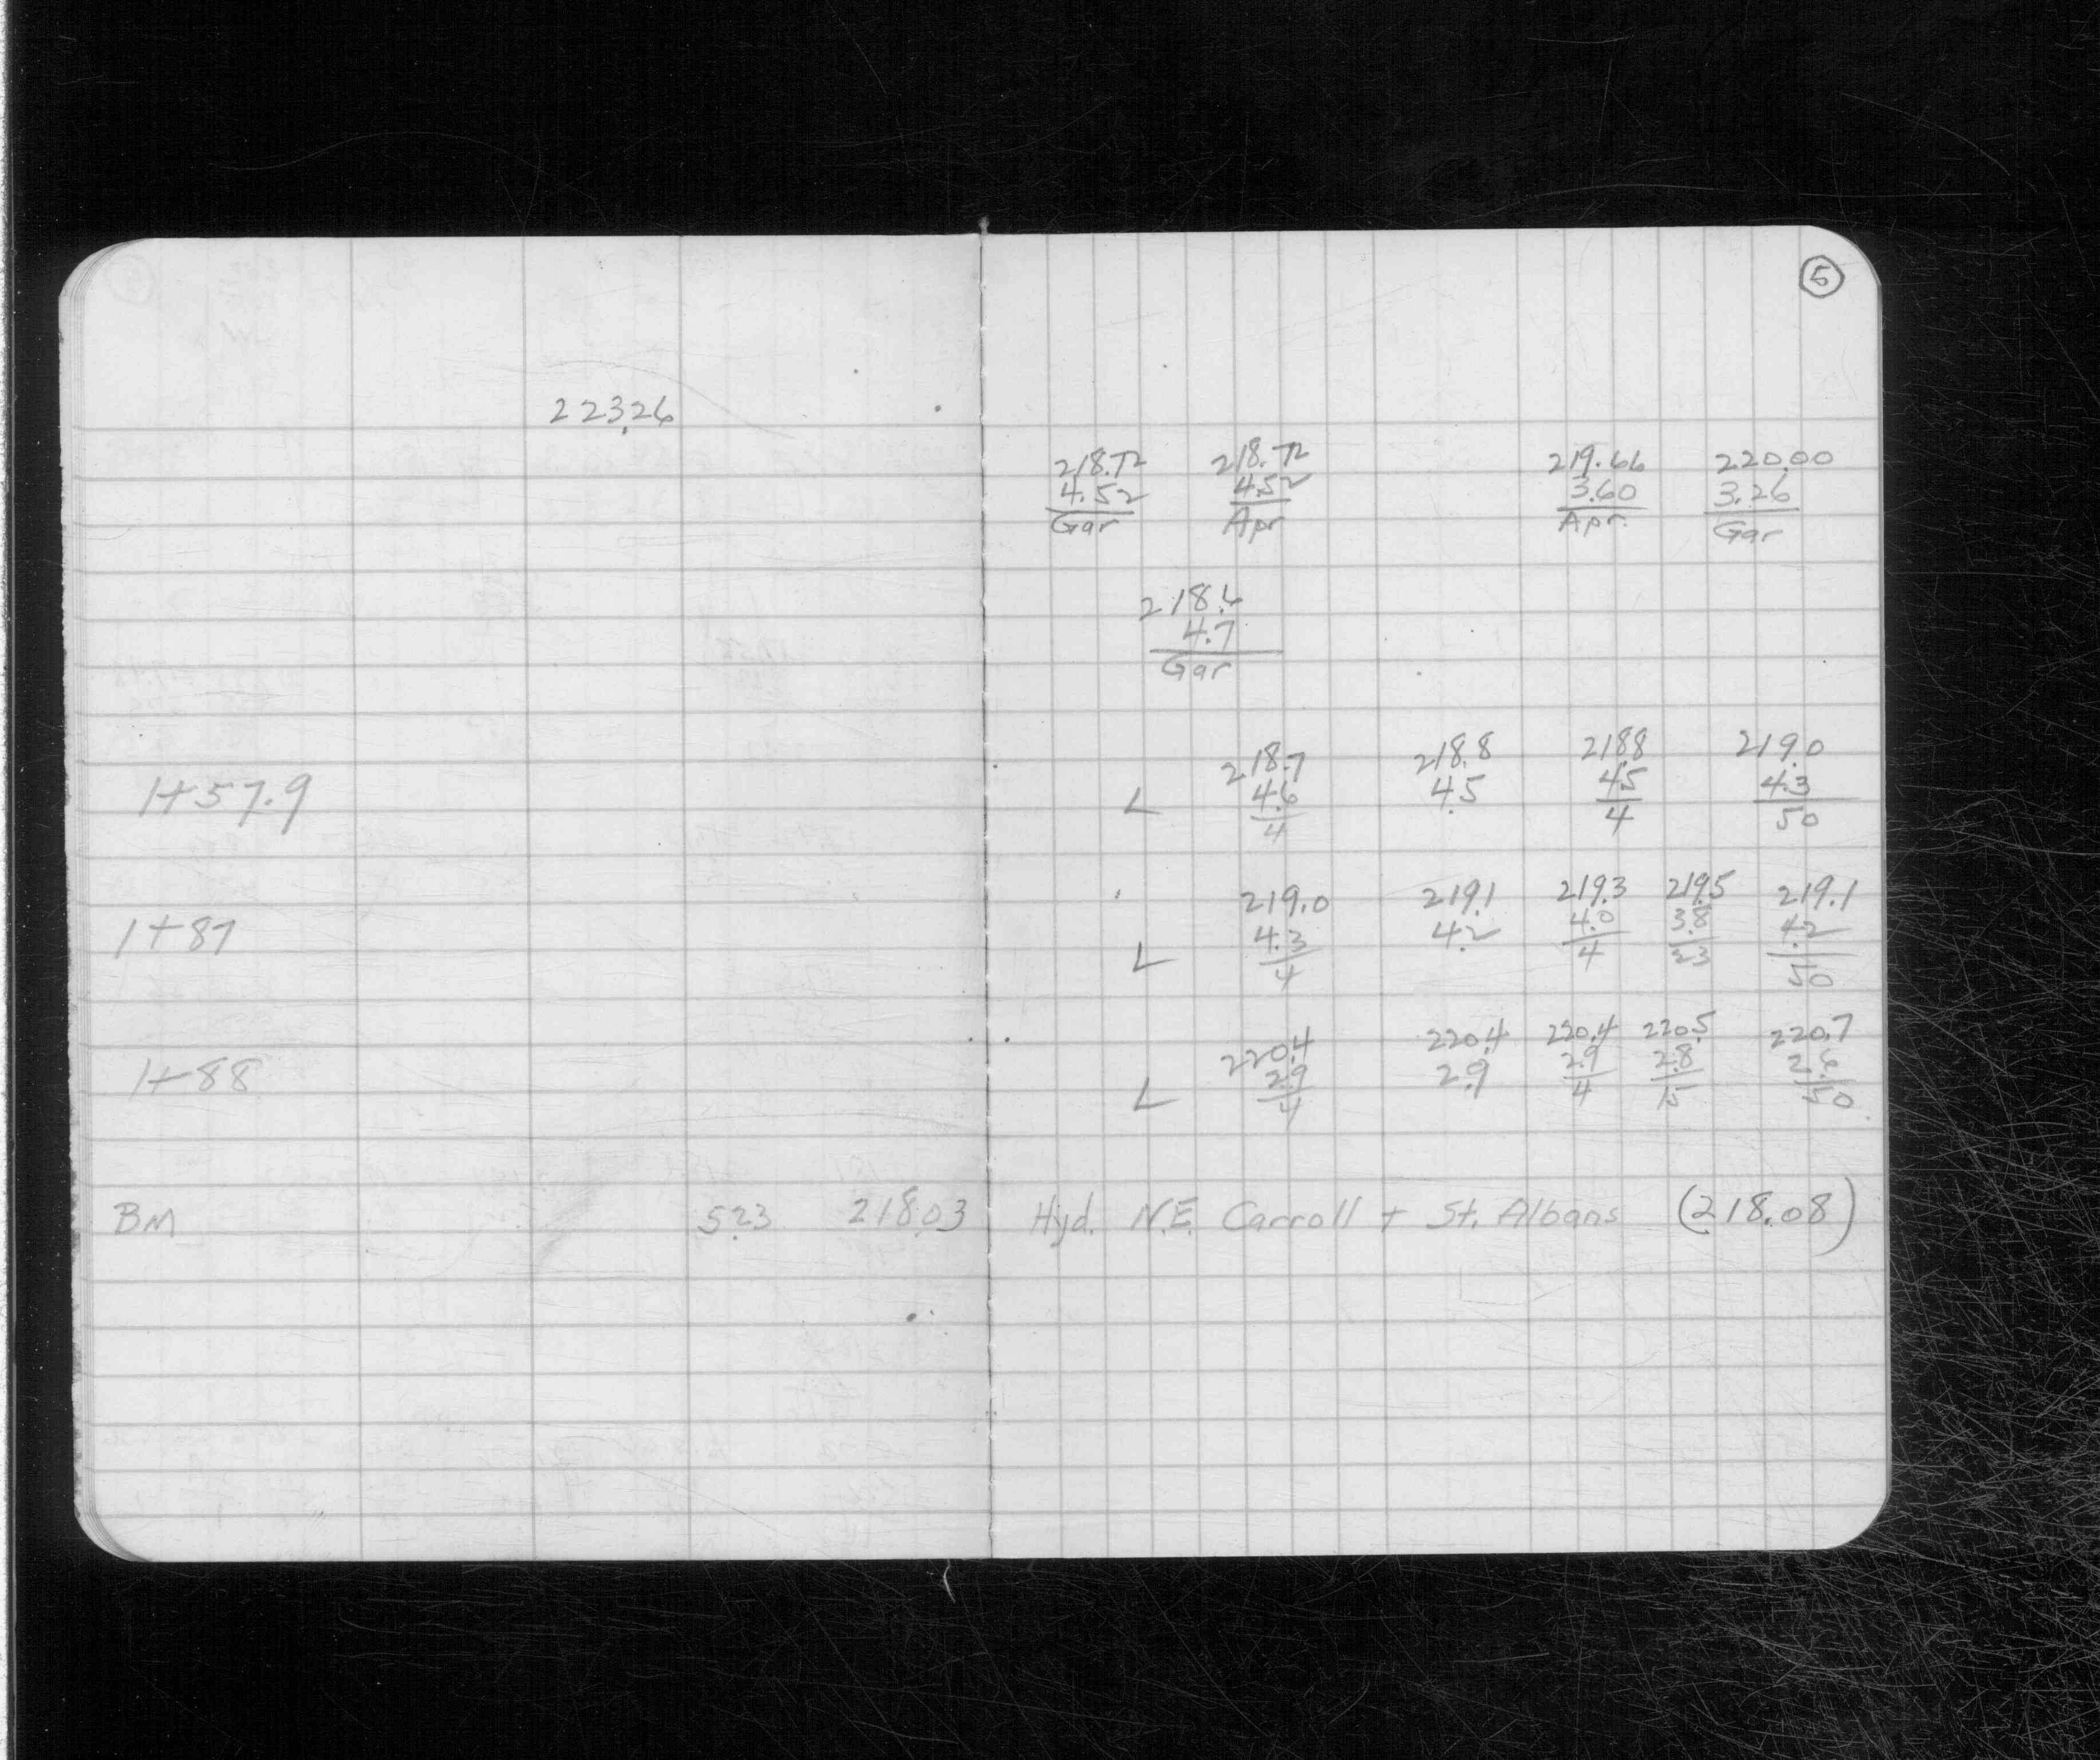 5
223.26
218.72 218.72 219.66 220.00
4.52 4.52 3.60 3.26
Gar Apr Apr. Gar
218.6
4.7
Gar
218.7 218.8 218.8 219.0
1+57.9 L 4.6 4.5 4.5 4.3
4 4 50
219.0 219.1 219.3 219.5 219.1
1+87 L 4.3 4.2 4.0 3.8 4.2
4 4 23 50
220.4 220.4 220.4 220.5 220.7
1+88 L 2.9 2.9 2.9 2.8 2.6
4 4 15 50
BM 5.23 218.03 Hyd. N.E. Carroll + St. Albans (218.08)